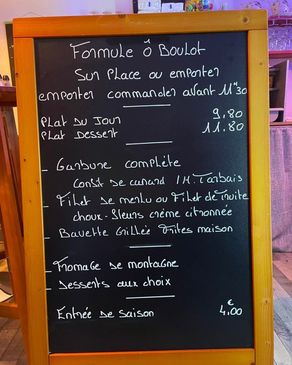 Formule ô Boulot
Sur Place ou emporter
emporter commander avant 11h30
Plat du Jour 9,80
Plat Dessert 11.80
- Garbure complète
Confit de canard / H. Tarbais
- Filet de merlu ou Filet de truite
choux-fleurs crème citronnée
- Bavette Grillée Frites maison
- Fromage de montagne
- Desserts aux choix
Entrée de saison 4,00 €